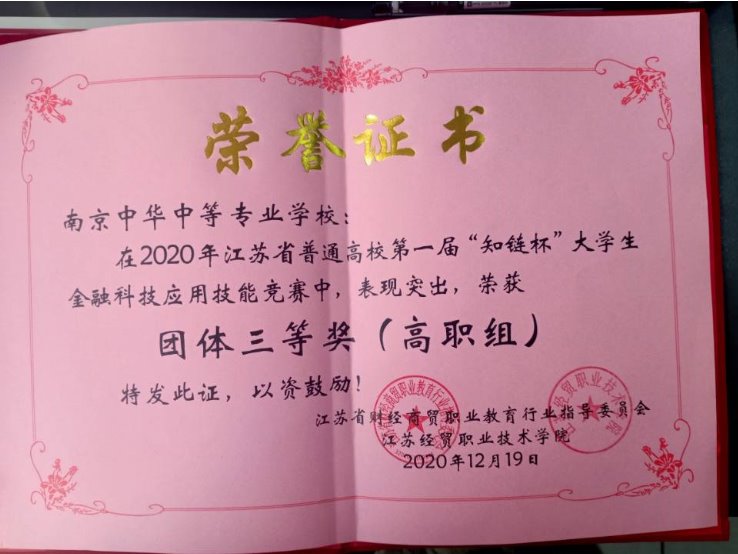 荣誉证书
南京中华中等专业学校：
在2020年江苏省普通高校第一届“知链杯”大学生
金融科技应用技能竞赛中，表现突出，荣获
团体三等奖（高职组）
特发此证，以资鼓励！
江苏省财经商贸职业教育行业指导委员会
江苏经贸职业技术学院
2020年12月19日